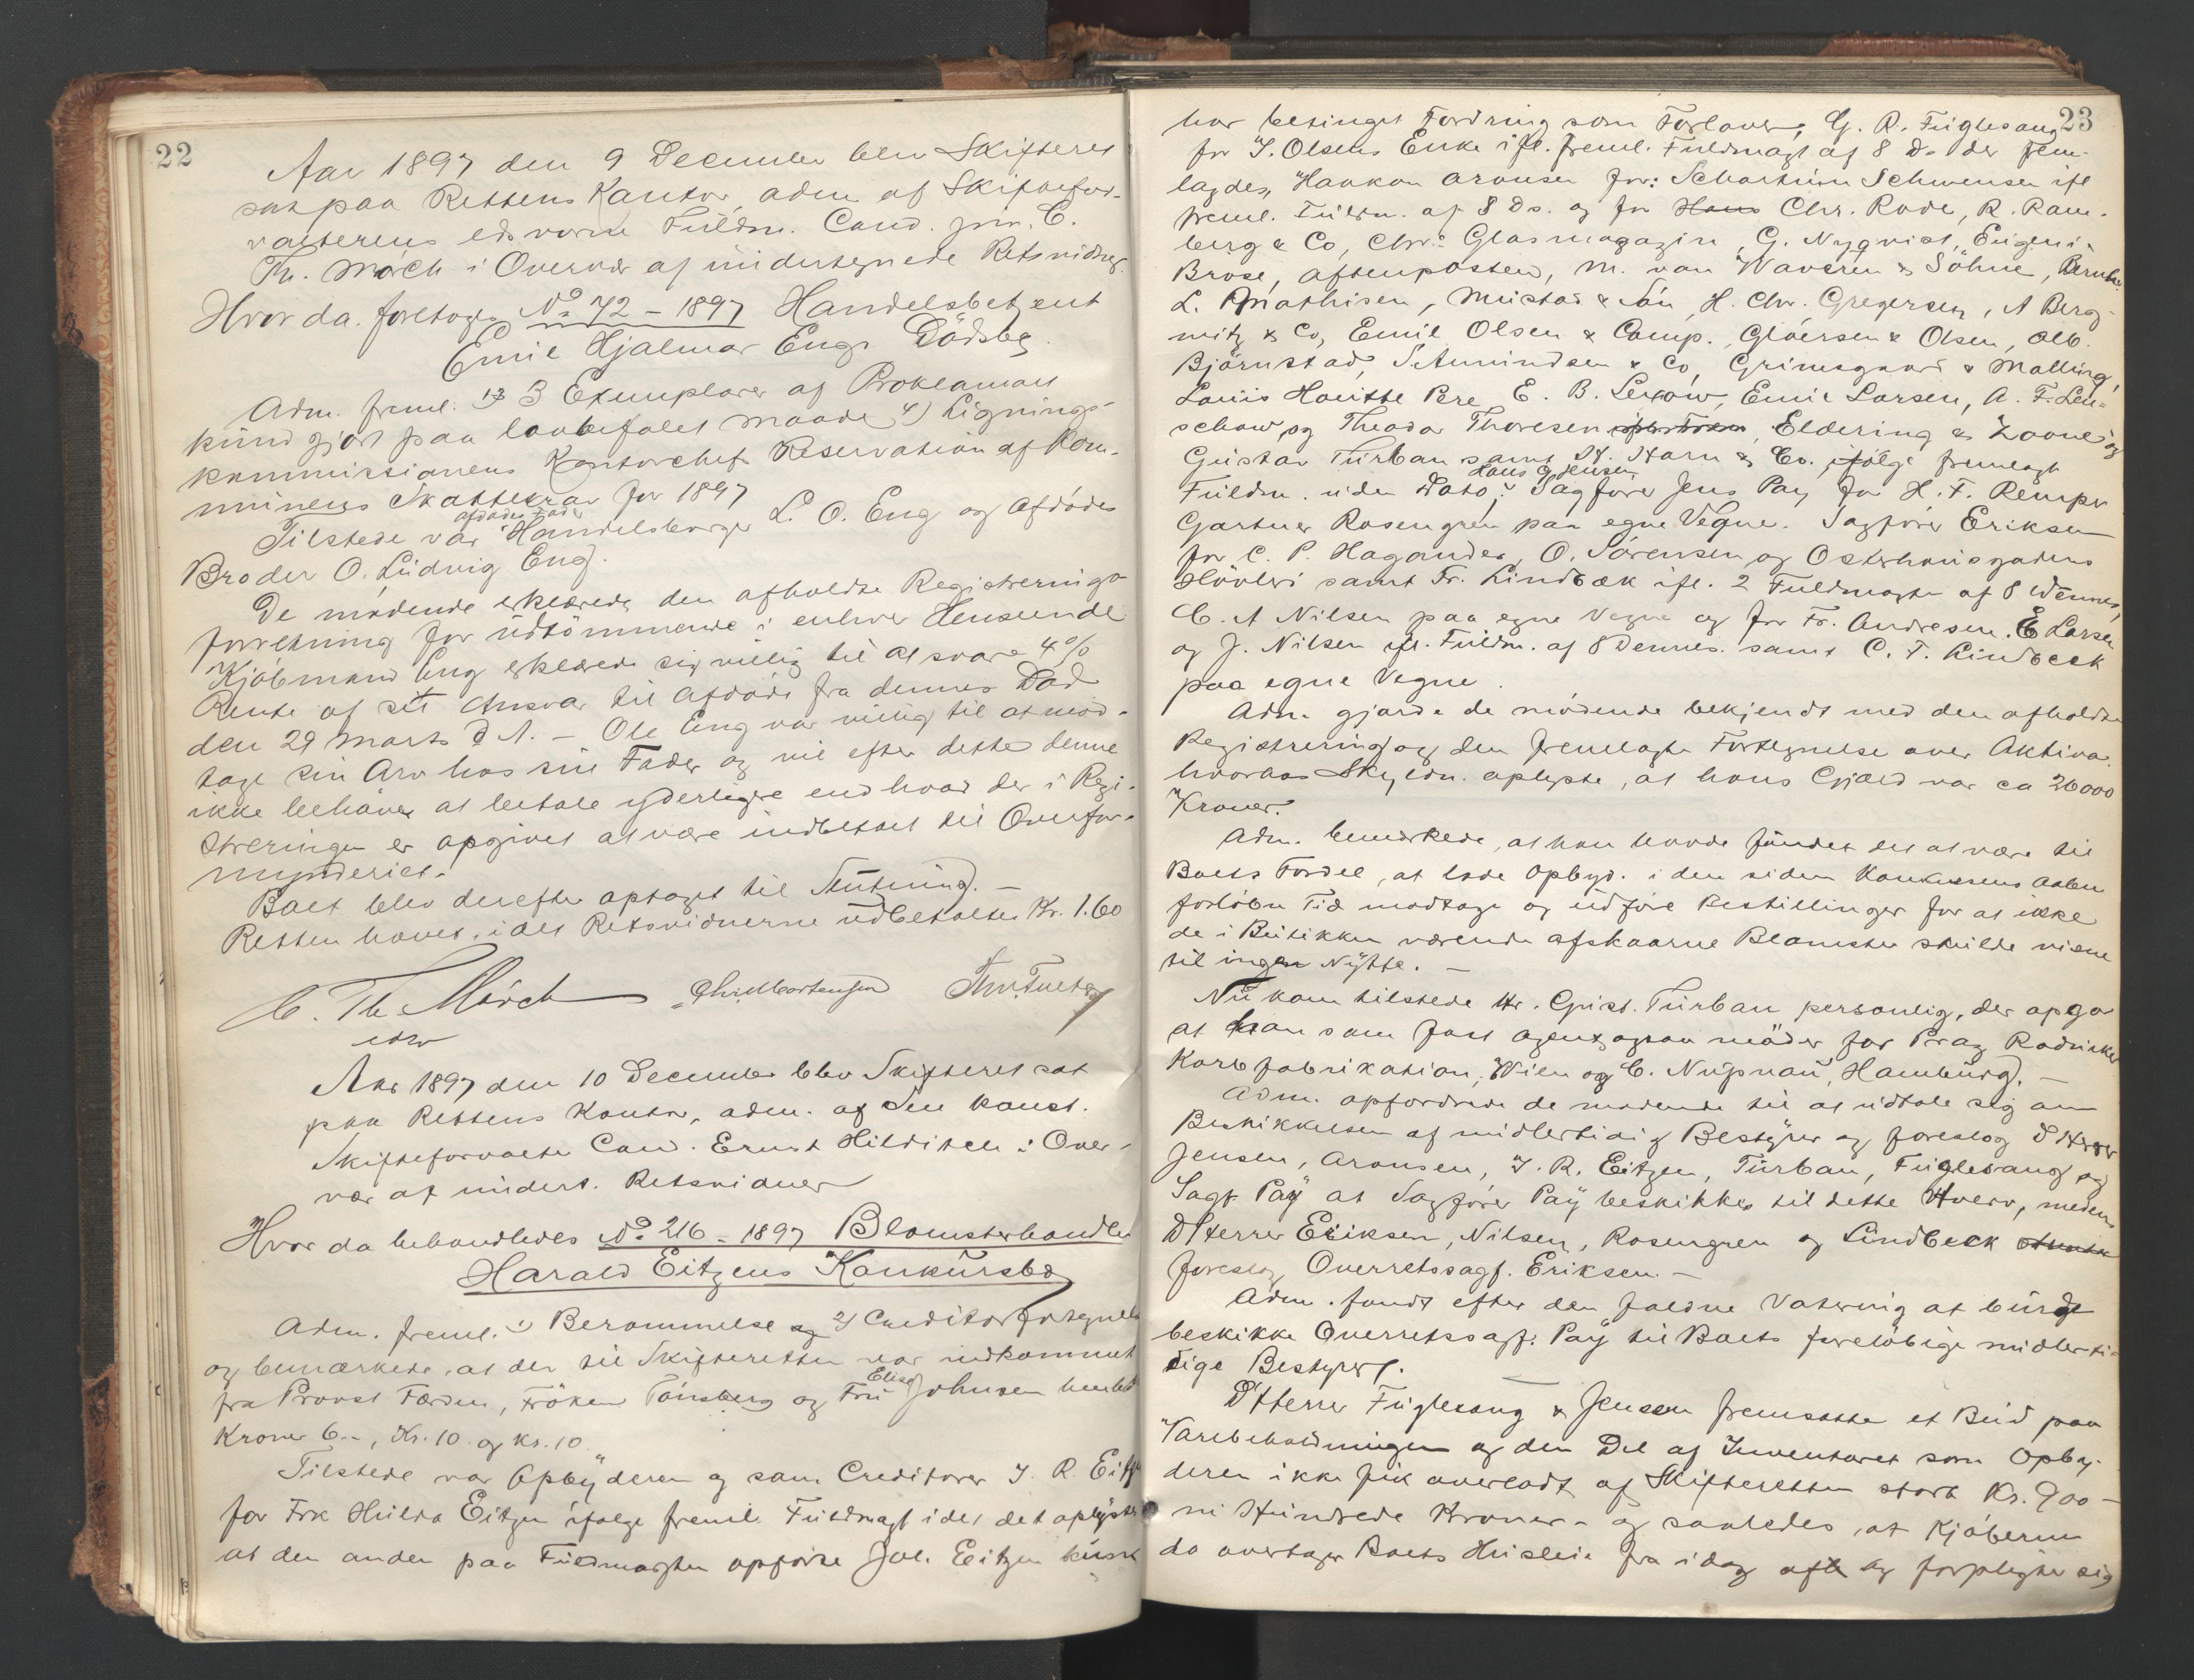 22
Aar 1897 den 9 December blev Skifteret
sat paa Rettens Kontor, adm. af Skiftefor-
valterens edsvorne Fuldm. Cand. jur. C.
Th. Mörch i Overvær af undertegnede Retsvidner.
Hvor da foretoges No 72 - 1897 Handelsbetjent
Emil Hjalmar Engs Dödsbo.
Adm. freml. 1-3 3 Exemplarer af Proklamaet
kundgjort paa lovbefalet Maade 4) Lignings-
kommissionens Kontorchefs Reservation af Kom-
munens Skattekrav for 1897
afdödes Fader
Tilstede var Handelsborger L. O. Eng og Afdödes
Broder O. Ludvig Eng.
De mödende erklærede den afholdte Registrerings-
forretning for udtömmende i enhver Henseende
Kjöbmand Eng erklærede sig villig til at svare 4%
Rente af sit Ansvar til Afdöde fra dennes Död
den 29 Marts d. A. - Ole Eng var villig til at mod-
tage sin Arv hos sin Fader og vil efter dette denne
ikke behöve at betale yderligere end hvad der i Regi-
streringen er opgivet at være indbetalt til Overfor-
mynderiet.
Boet blev derefter optaget til Slutning. -
Retten hævet, idet Retsvidnerne udbetaltes Kr. 1.60
C. Th Mörch Chr. Mortensen Thv.
edsv
Aar 1897 den 10 December blev Skifteret sat
paa Rettens Kontor, adm. af den konst.
Skifteforvalter Cand. Ernst Hilditch i Over-
vær af undert. Retsvidner
Hvor da behandledes No 216 - 1897 Blomsterhandler
Harald Eitzens Konkursbo
Adm. freml. 1) Berammelse og 2) Creditorfortegnelse
og bemærkede, at der til Skifteretten var indkommet
Elise
fra Provst Færden, Fröken Tönsberg og Fru Johnsen henholdsv.
Kroner 6.-, Kr. 10 og Kr. 10.
Tilstede var Opbyderen og som Creditorer J. R. Eitzen
for Frk Hilda Eitzen ifölge freml. Fuldmagt idet det oplystes
at den anden paa Fuldmagten opförte Joh. Eitzen kun
23
har betinget Fordring som Forlover, G. R. Fuglesang
for J. Olsens Enke ifl. freml. Fuldmagt af 8 Ds der frem-
lagdes, Haakon Aronsen for: Schartum Schwensen ifl
freml. Fuldm. af 8 Ds. og for Hans Chr. Rode, R. Ram-
berg & Co, Chr.a Glasmagazin, G. Nyqvist, Eugen
Bröse, Aftenposten, M. van Waveren & Söhne,
L. Mathisen, Mustad & Sön, H. Chr. Gregersen, A Berg-
witz & Co, Emil Olsen & Comp., Glöersen & Olsen, Alb.
Björnstad, S. Amundsen & Co, Grimsgaard & Malling,
Louis Houitte Pere, E. B. Lexow, Emil Larsen, A. F. Leu-
schow og Theodor Thoresen, Eldering & Zoone og
Gustav Turban samt H. Horn & Co. ifölge fremlagt
Hans G. Jensen
Fuldm. uden Dato; Sagförer Jens Pay for H. F. Remper
Gartner Rosengren paa egne Vegne. Sagförer Eriksen
for C. P. Hagander, O. Sörensen og Osterhausgadens
Hövleri samt Fr. Lindbæk ifl. 2 Fuldmagter af 8 dennes,
C. A Nilsen paa egne Vegne og for Fr. Andresen, E Larsen
og J. Nilsen ifl. Fuldm. af 8 dennes. samt C. T. Lindbeck
paa egne Vegne.
Adm. gjorde de mödende bekjendt med den afholdte
Registrering og den fremlagte Fortegnelse over Aktiva.
hvorhos Skyldn. oplyste, at hans Gjæld var ca 26000
Kroner.
Adm. bemærkede, at han havde fundet det at være til
Boets Fordel, at lade Opbyd. i den siden Konkursens Aaben
forlöbne Tid modtage og udföre Bestillinger for at ikke
de i Butikken værende afskaarne Blomster skulde visne
til ingen Nytte. -
Nu kom tilstede Hr. Gust. Turban personlig, der opga
at han som fast Agent ogsaa möder for Prag Rudniker
Korbfabrikation, Wien og C. Nupnau, Hamburg. -
Adm. opfordrede de mödende til at udtale sig om
Beskikkelsen af midlertidig Bestyrer og foreslog D'Herrer
Jensen, Aronsen, J. R. Eitzen, Turban, Fuglesang og
Sagf. Pay at Sagförer Pay beskikkes til dette Hverv, medens
D'Herrer Eriksen, Nilsen, Rosengren og Lindbeck
foreslog Overretssagf. Eriksen. -
Adm. fandt efter den faldne Votering at burde
beskikke Overretssagf. Pay til Boets forelöbige midlerti-
dige Bestyrer.
D'Herrer Fuglesang & Jensen fremsatte et Bud paa
Varebeholdningen og den Del af Inventaret som Opby-
deren ikke fik overladt af Skifteretten stort Kr. 900 -
ni Hundrede Kroner - og saaledes, at Kjöberne
da overtager Boets Husleie fra idag af og forpligter sig